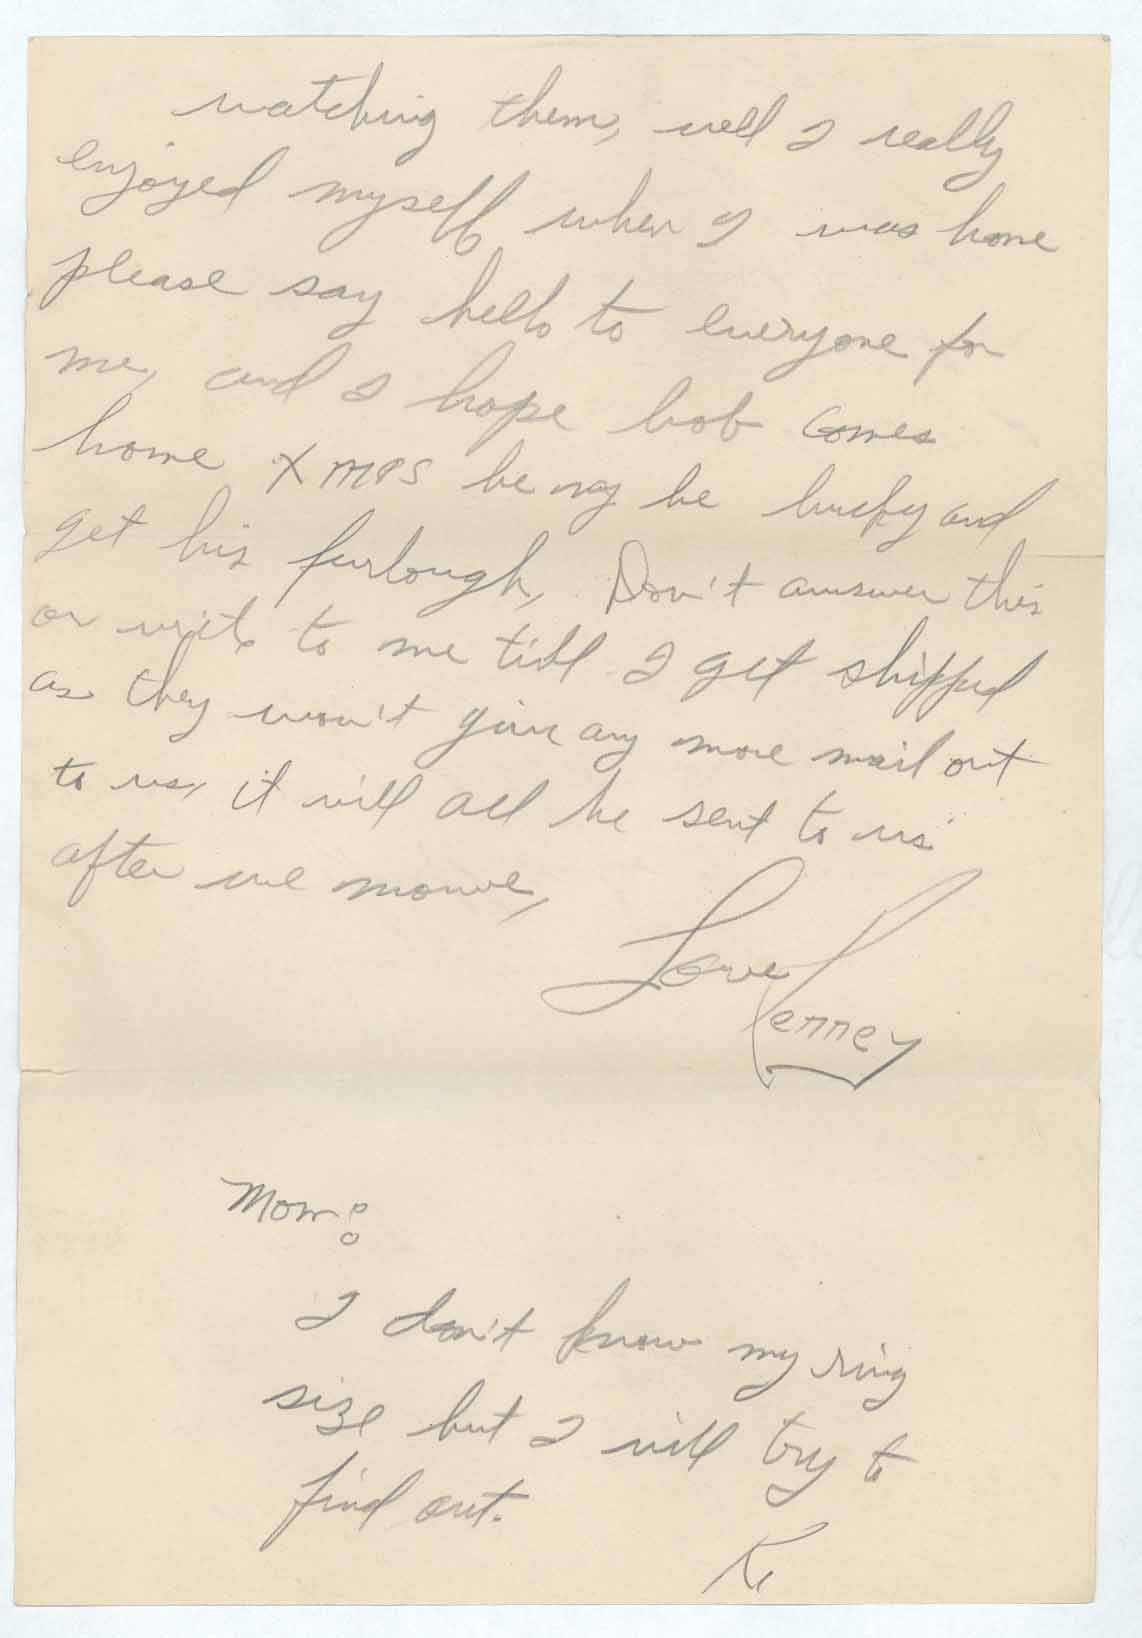 watching them, well I really
enjoyed myself when I was home
please say hello to everyone for
me, and I hope bob comes
home XMAS he may be lucky and
get his furlough, Don't answer this
or write to me till I get shipped
as they won't give any more mail out
to us, it will all be sent to us
after we mouve,
Love
Kenney
Mom:
I don't know my ring
size but I will try to
find out.
K